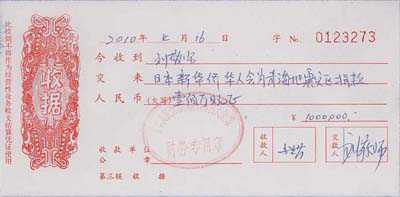 此收据不得作为经营性业务收支结算凭证使用
收据
2010年 七月 16日 字No.0123273
今收到
交来 日本新华侨华人会为青海地震灾区捐款
人民币(大写)壹佰万日元
¥ 1000000.
收款单位
公章
财务专用章
收款人
交款人
第三联 收据